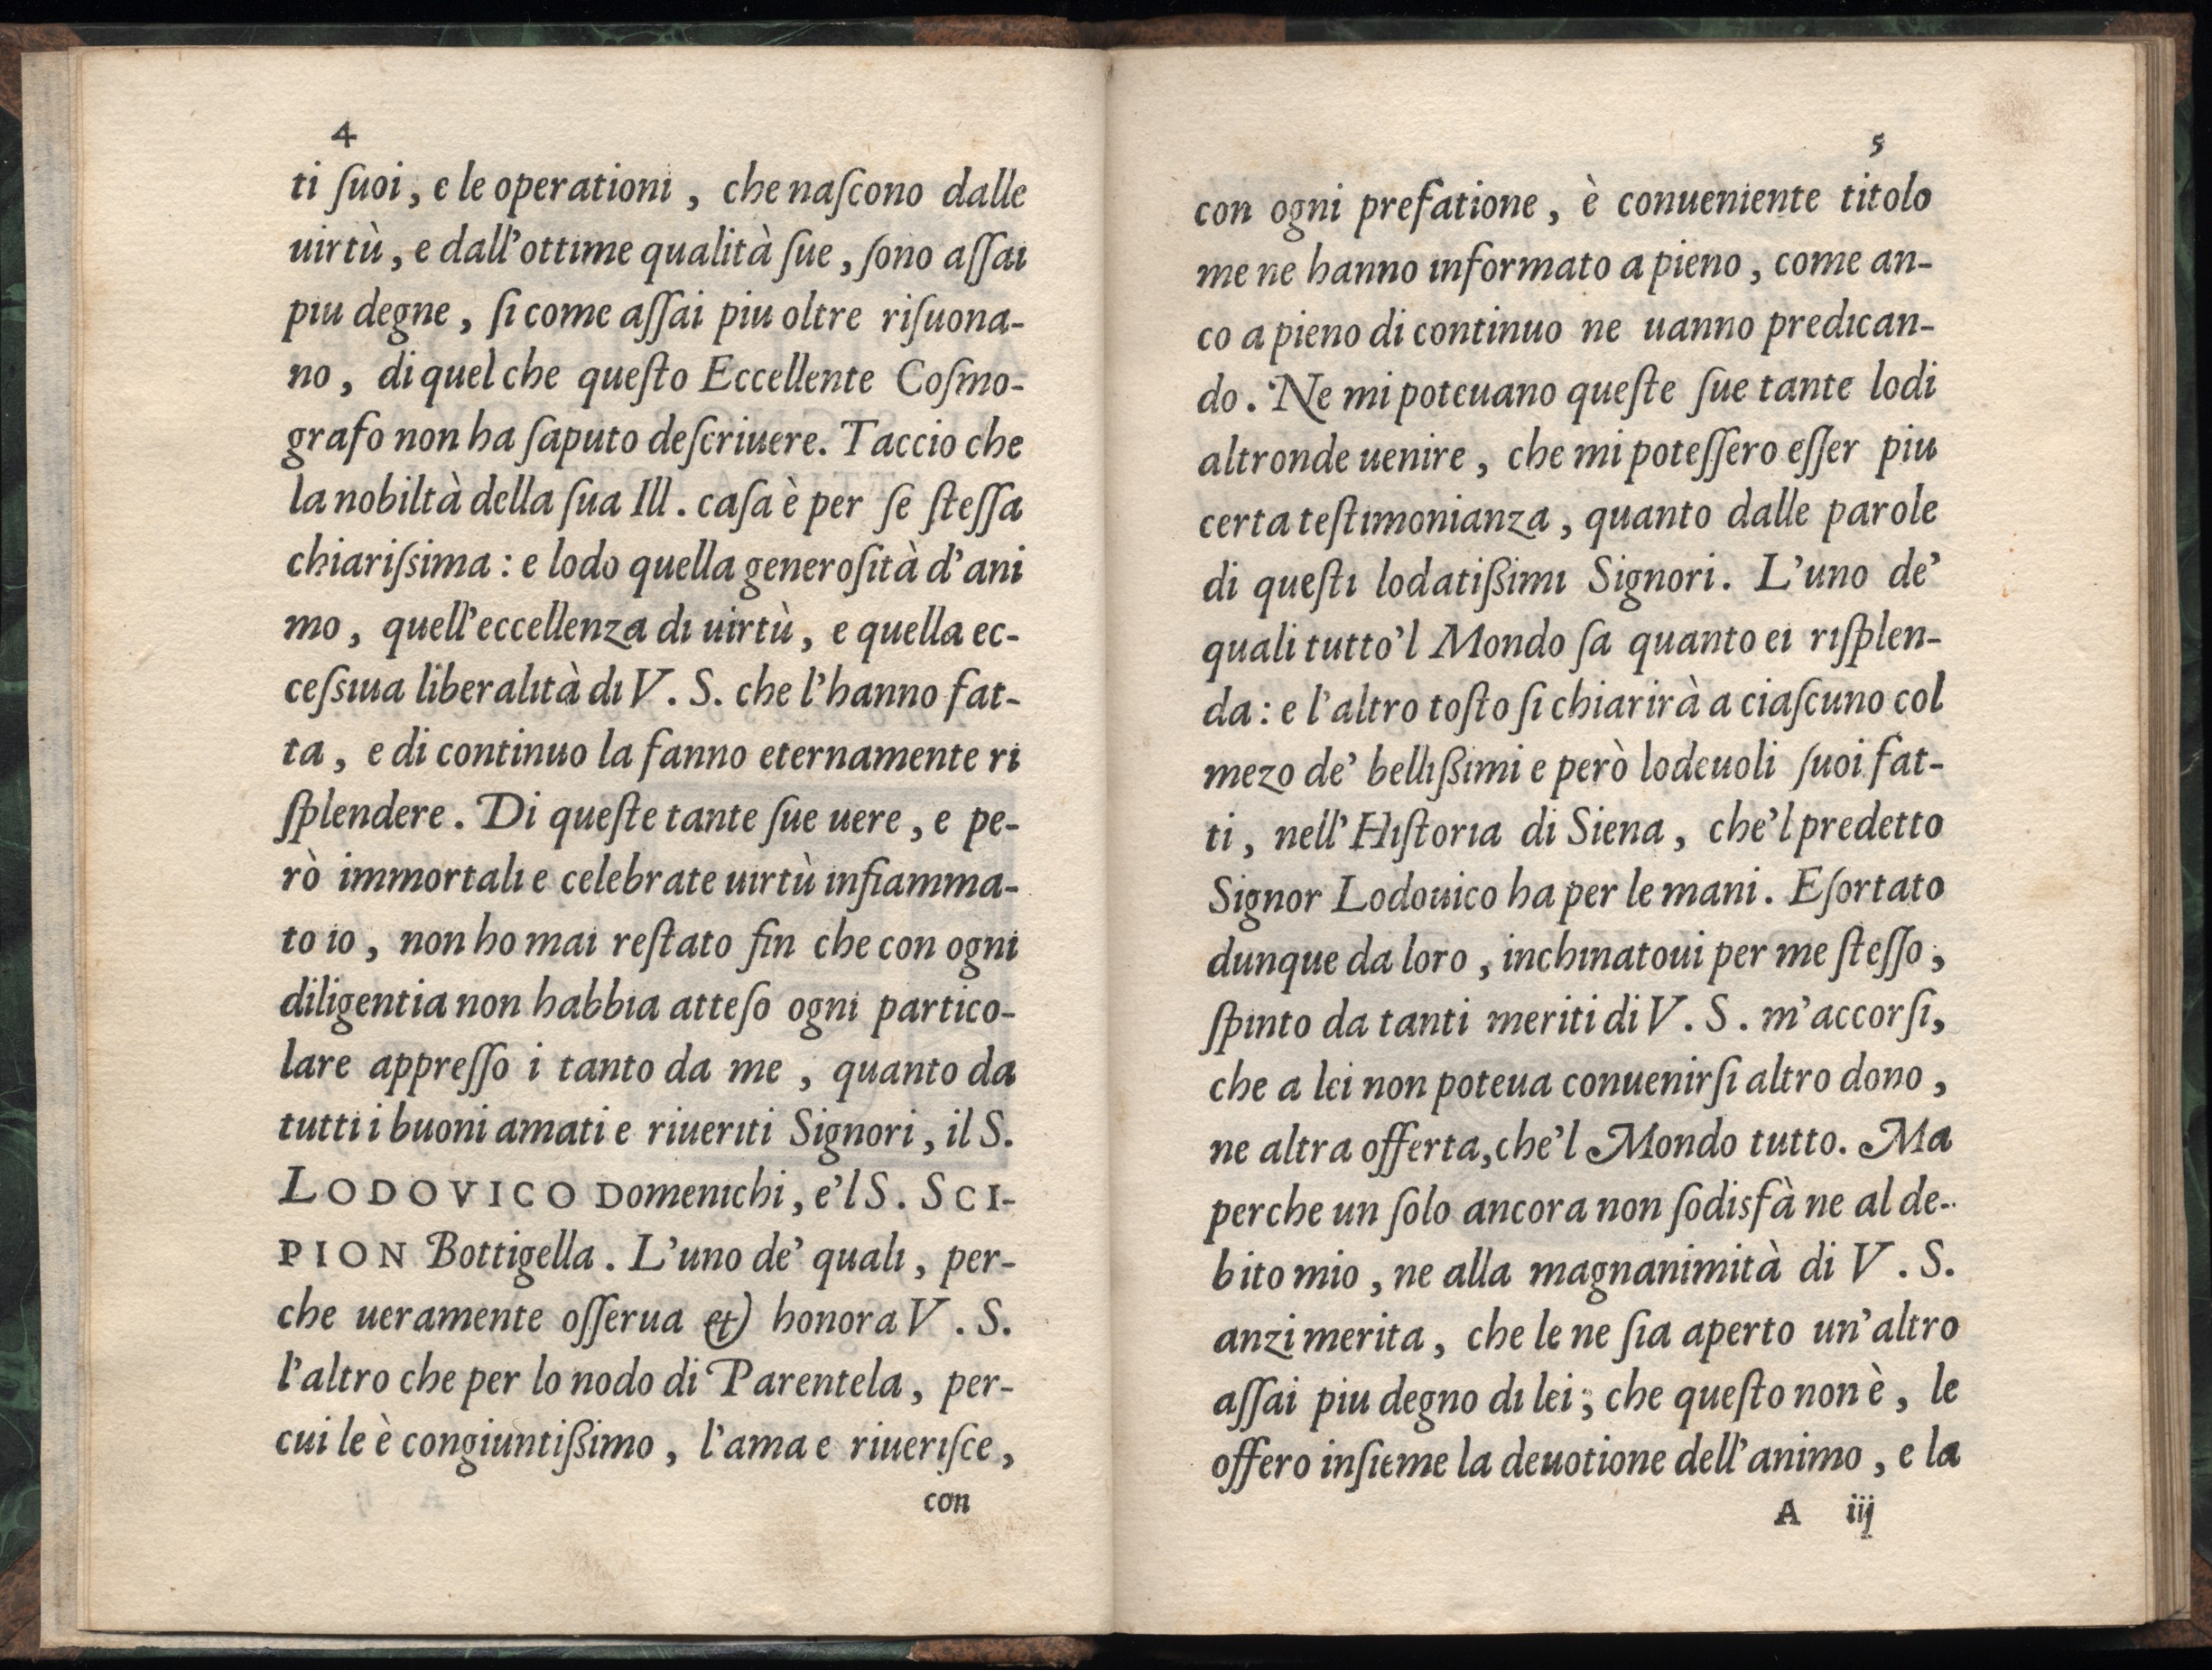 4
ti ſuoi, e le operationi, che naſcono dalle
uirtù, e dall'ottime qualità ſue, ſono aſſai
piu degne, ſi come aſſai piu oltre riſuona-
no, di quel che queſto Eccellente Coſmo-
grafo non ha ſaputo deſcriuere. Taccio che
la nobiltà della ſua Ill. caſa è per ſe ſteſſa
chiariſsima: e lodo quella generoſità d'ani
mo, quell'eccellenza di uirtù, e quella ec-
ceſsiua liberalità di V. S. che l'hanno fat-
ta, e di continuo la fanno eternamente ri
ſplendere. Di queſte tante ſue uere, e pe-
rò immortali e celebrate uirtù infiamma-
to io, non ho mai reſtato fin che con ogni
diligentia non habbia atteſo ogni partico-
lare appreſſo i tanto da me, quanto da
tutti i buoni amati e riueriti Signori, il S.
LODOVICO Domenichi, e'l S. SCI-
PION Bottigella. L'uno de' quali, per-
che ueramente oſſerua & honora V. S.
l'altro che per lo nodo di Parentela, per-
cui le è congiuntißimo, l'ama e riueriſce,
con
5
con ogni prefatione, è conueniente titolo
me ne hanno informato a pieno, come an-
co a pieno di continuo ne uanno predican-
do. Ne mi poteuano queſte ſue tante lodi
altronde uenire, che mi poteſſero eſſer piu
certa teſtimonianza, quanto dalle parole
di queſti lodatißimi Signori. L'uno de'
quali tutto'l Mondo ſa quanto ei riſplen-
da: e l'altro toſto ſi chiarirà a ciaſcuno col
mezo de' bellißimi e però lodeuoli ſuoi fat-
ti, nell'Hiſtoria di Siena, che'l predetto
Signor Lodouico ha per le mani. Eſortato
dunque da loro, inchinatoui per me ſteſſo,
ſpinto da tanti meriti di V. S. m'accorſi,
che a lei non poteua conuenirſi altro dono,
ne altra offerta, che'l Mondo tutto. Ma
perche un ſolo ancora non ſodisfà ne al de-
bito mio, ne alla magnanimità di V. S.
anzi merita, che le ne ſia aperto un'altro
aſſai piu degno di lei; che queſto non è, le
offero inſieme la deuotione dell'animo, e la
A iij